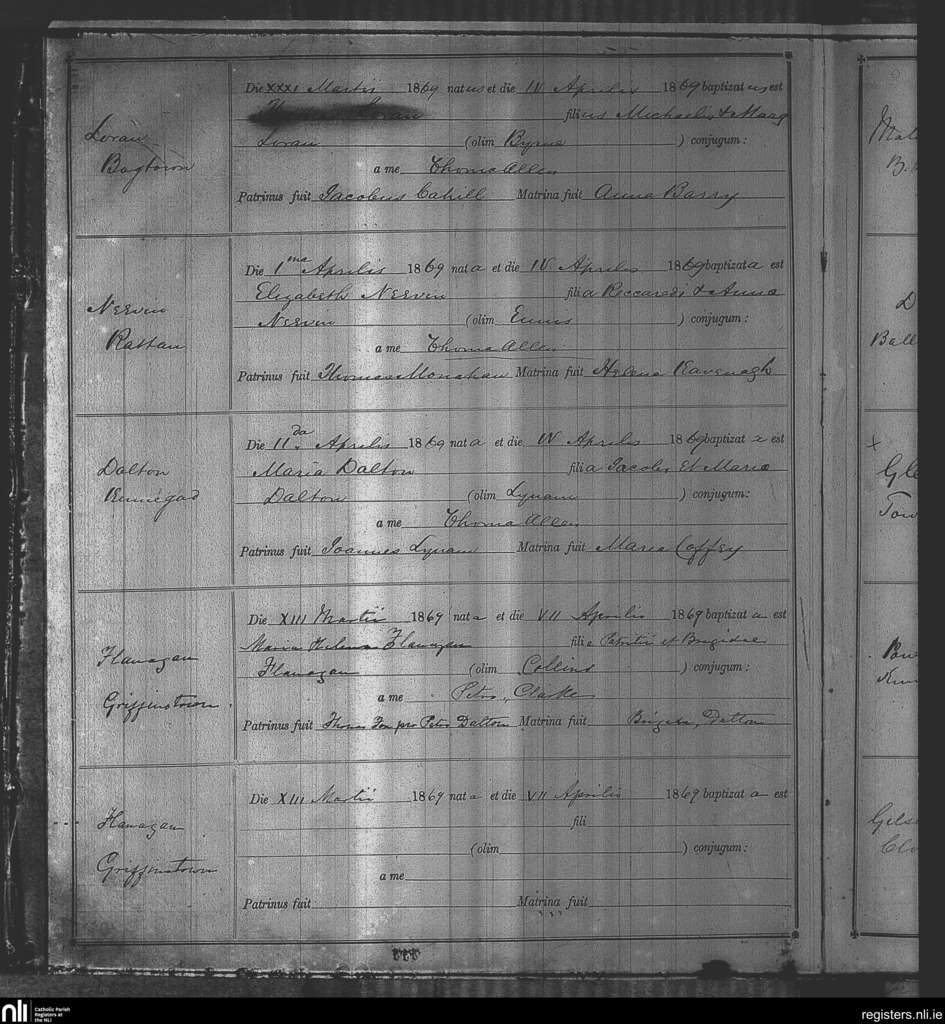 Die XXXI Martii 1869 natus et die IV Aprilis 1869 baptizatus est
Loran filius Michaelis & Marg
Loran
Loran (olim Byrne) conjugum:
Bogtown
a me Thoma Allen
Patrinus fuit Jacobus Cahill Matrina fuit Anna Barry
Die 1ma Aprilis 1869 nata et die IV Aprilis 1869 baptizata est
Elizabeth Nervin filia Reccaredi & Anna
Nervin
Nervin (olim Ennis) conjugum:
Rattan
a me Thoma Allen
Patrinus fuit Thomas Monahan Matrina fuit Helena Kavenagh
Die 11da Aprilis 1869 nata et die IV Aprilis 1869 baptizata est
Maria Dalton filia Jacobi et Maria
Dalton
Dalton (olim Lynam) conjugum:
Kinnegad
a me Thoma Allen
Patrinus fuit Joannes Lynam Matrina fuit Maria Coffey
Die XIII Martii 1869 nata et die VII Aprilis 1869 baptizata est
Maria Helena Flanagan filia Patritii et Brigidae
Flanagan
Flanagan (olim Collins) conjugum:
a me Petro Clarke
Griffinstown
Patrinus fuit Thoms Fox pro Petro Dalton Matrina fuit Brigida Dalton
Die XIII Martii 1869 nata et die VII Aprilis 1869 baptizata est
fili
Flanagan
(olim ) conjugum:
Griffinstown
a me
Patrinus fuit Matrina fuit
Gle
Tow
nli
Catholic Parish
Registers at
the NLI
registers.nli.ie